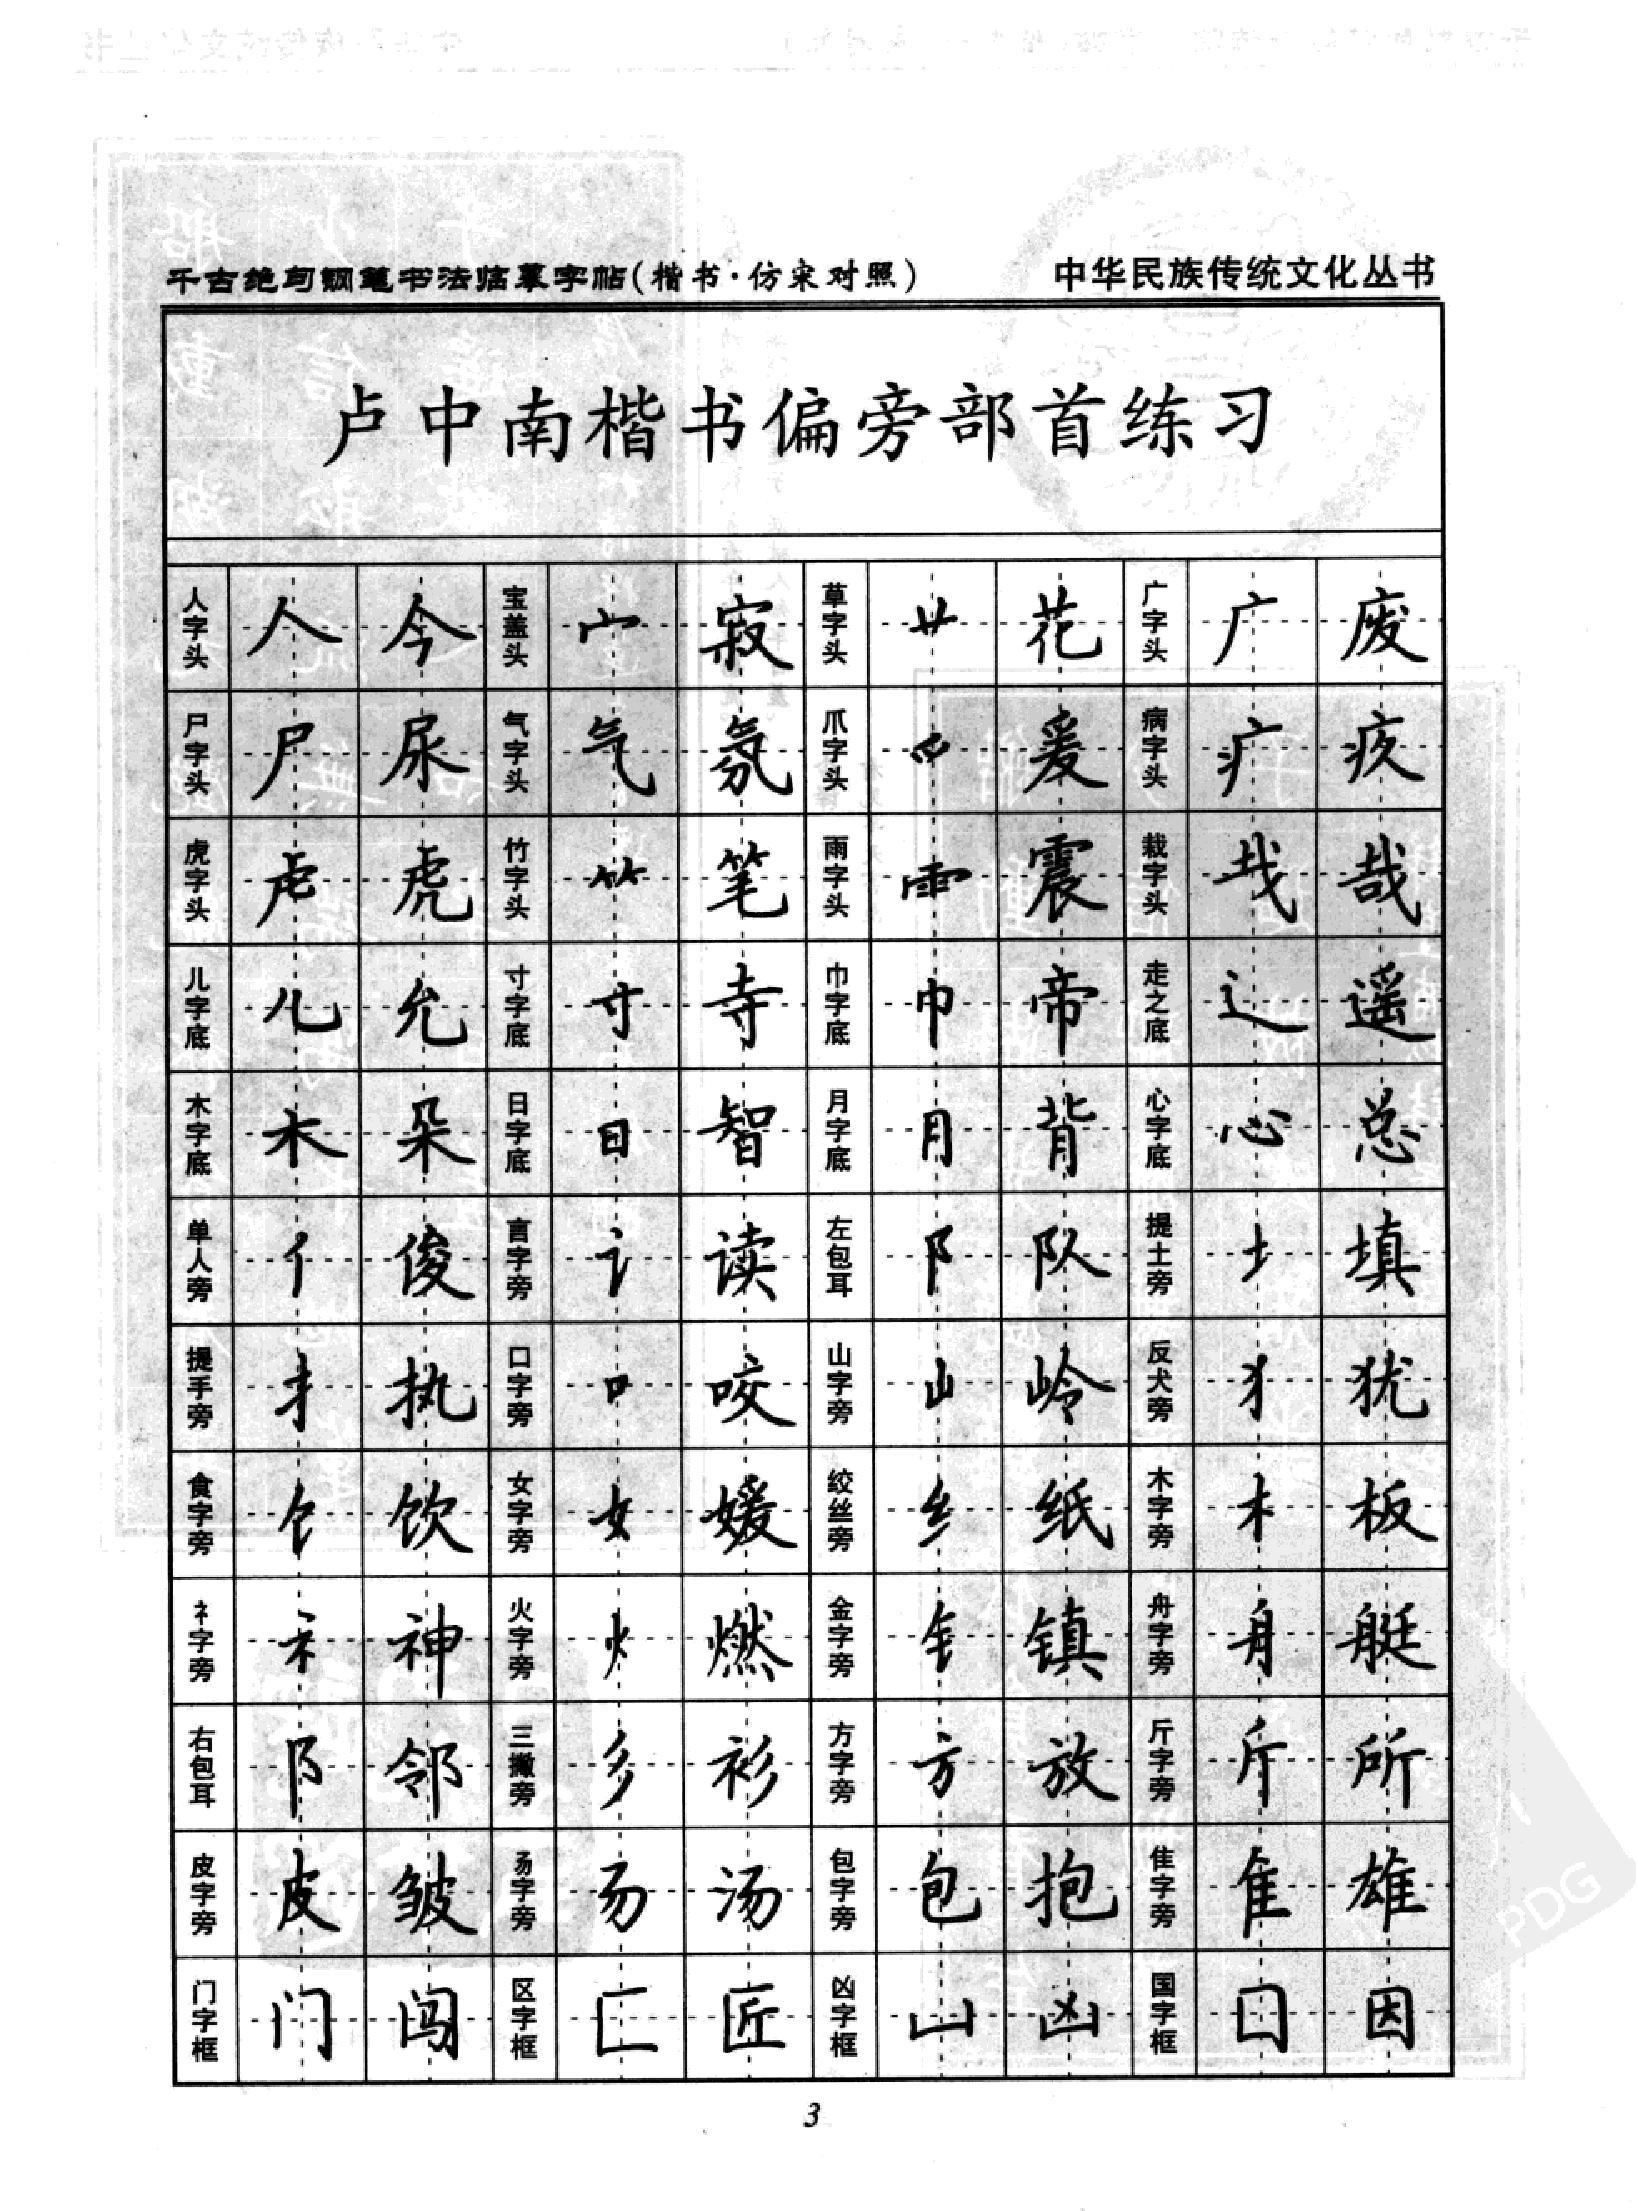 千古绝句钢笔书法临摹字帖(楷书·仿宋对照) 中华民族传统文化丛书
卢中南楷书偏旁部首练习
人字头 人 今 宝盖头 宀 寂 草字头 艹 花 广字头 广 废
尸字头 尸 尿 气字头 气 氛 爪字头 爫 爰 病字头 疒 疚
虎字头 虍 虎 竹字头 ⺮ 笔 雨字头 ⻗ 震 栽字头 𢦏 哉
儿字底 儿 允 寸字底 寸 寺 巾字底 巾 帝 走之底 辶 遥
木字底 木 朵 日字底 日 智 月字底 月 背 心字底 心 总
单人旁 亻 俊 言字旁 讠 读 左包耳 阝 队 提土旁 土 填
提手旁 扌 执 口字旁 口 咬 山字旁 山 岭 反犬旁 犭 犹
食字旁 饣 饮 女字旁 女 媛 绞丝旁 纟 纸 木字旁 木 板
礻字旁 礻 神 火字旁 火 燃 金字旁 钅 镇 舟字旁 舟 艇
右包耳 阝 邻 三撇旁 彡 衫 方字旁 方 放 斤字旁 斤 所
皮字旁 皮 皱 𠃓字旁 𠃓 汤 包字旁 包 抱 隹字旁 隹 雄
门字框 门 闯 区字框 匚 匠 凶字框 凵 凶 国字框 囗 因
3
PDG